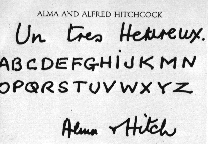 ALMA AND ALFRED HITCHCOCK
Un tres Heureux.
ABCDEFGHIJKMN
OPQRSTUVWXYZ
Alma & Hitch